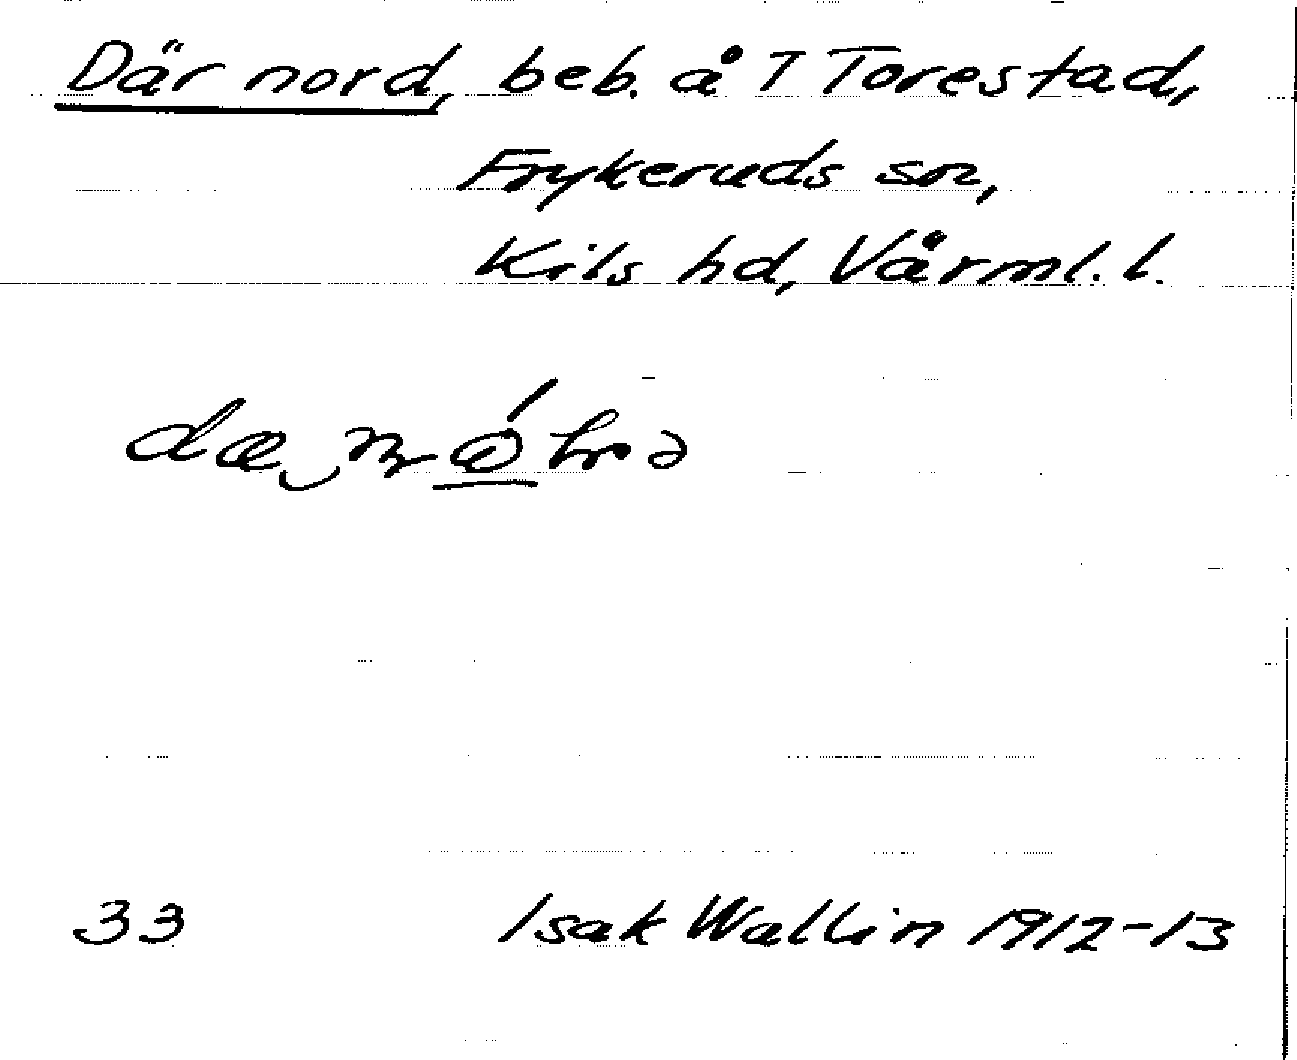 Där nord, beb. å T Torestad,
Frykeruds sn,
Kils hd, Värml. l.
33 Isak Wallin 1912-13